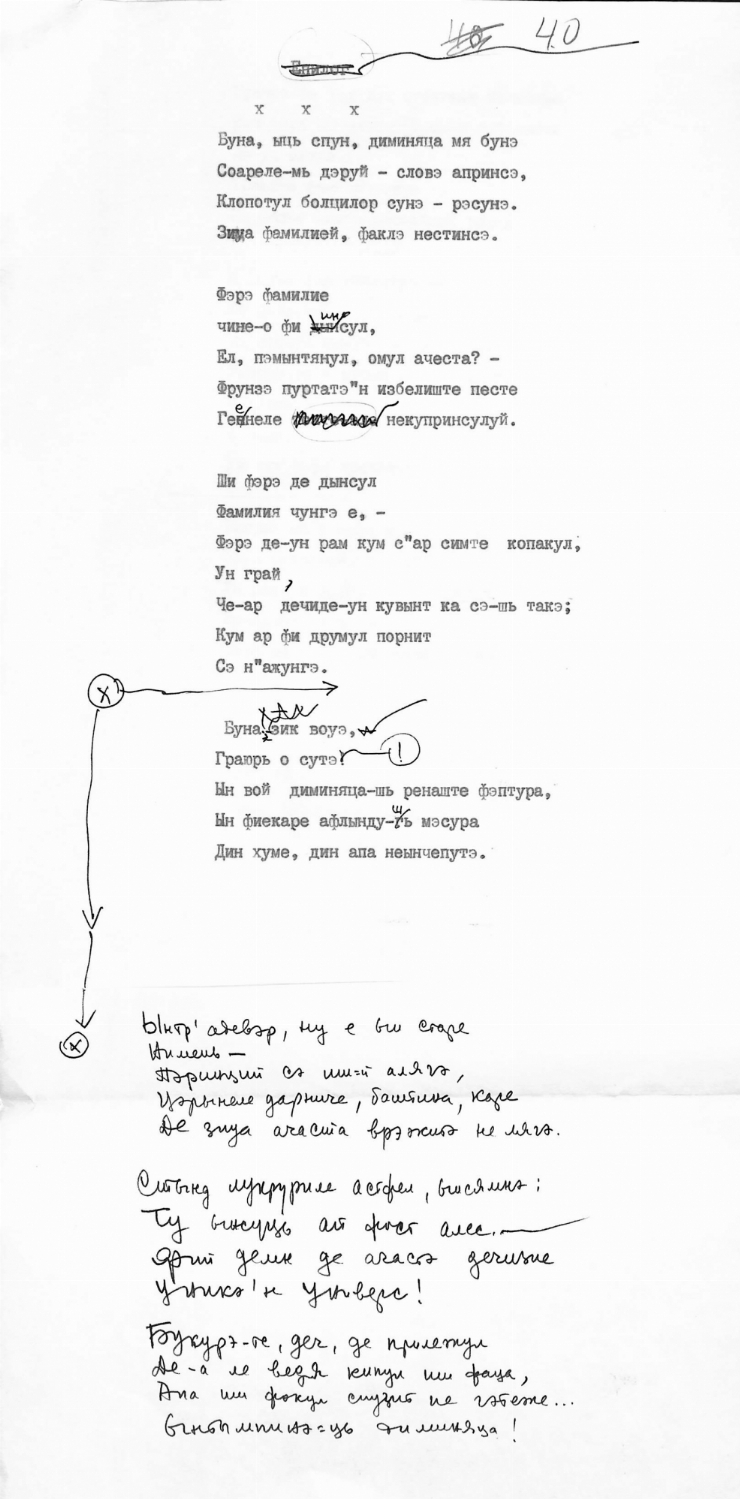 40
х х х
Буна, ыць спун, диминяца мя бунэ
Соареле-мь дэруй - словэ апринсэ,
Клопотул болцилор сунэ - рэсунэ.
Зиуа фамилией, факлэ нестинсэ.
Фэрэ фамилие
чине-о фи инсул,
Ел, пэмынтянул, омул ачеста? -
Фрунзэ пуртатэ"н избелиште песте
Генеле некупринсулуй.
Ши фэрэ де дынсул
Фамилия чунгэ е, -
Фэрэ де-ун рам кум с"ар симте копакул,
Ун грай,
Че-ар дечиде-ун кувынт ка сэ-шь такэ;
Кум ар фи друмул порнит
Сэ н"ажунгэ.
х
Буна, зик воуэ,
Граюрь о сутэ!
Ын вой диминяца-шь ренаште фэптура,
Ын фиекаре афлынду-шь мэсура
Дин хуме, дин апа неынчепутэ.
х
Ынтр' адевэр, ну е ын старе
Нимень —
Пэринций сэ ши-й алягэ,
Цэрынеле дарниче, баштина, каре
Де зиуа ачаста врэжитэ не лягэ.
Стынд лукруриле астфел, ынсямнэ:
Ту ынсуць ай фост алес.
Фий демн де ачастэ дечизие
Уникэ'н Универс!
Букурэ-те, деч, де прилежул
Де-а ле ведя кипул ши фаца,
Апа ши фокул слузит не гэтеже...
Ынтымпинэ-ць диминяца!